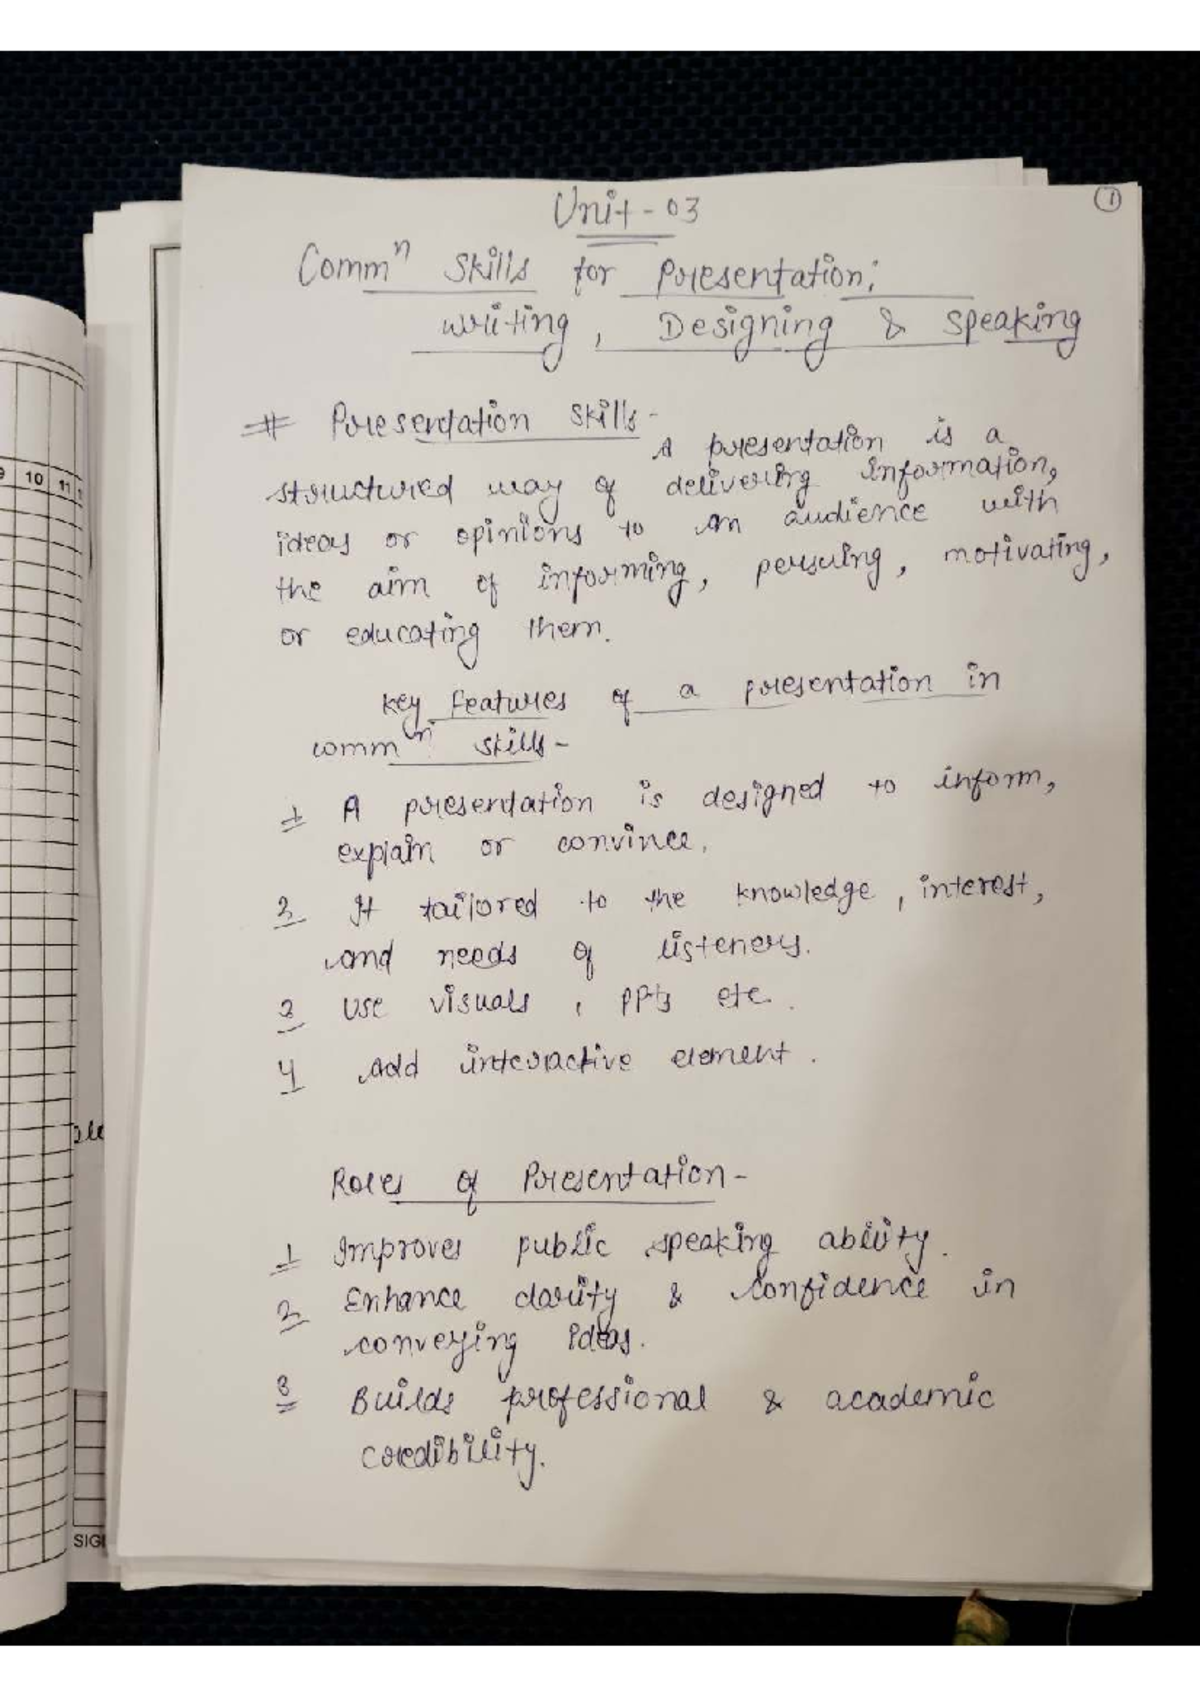 1
Unit - 03
Commⁿ Skills for Presentation;
writing, Designing & Speaking
# Presentation Skills -
A presentation is a
structured way of delivering information,
ideas or opinions to an audience with
the aim of informing, persuing, motivating,
or educating them.
Key Features of a presentation in
commⁿ skills -
1 A presentation is designed to inform,
explain or convince.
2 It tailored to the knowledge, interest,
and needs of listeners.
3 Use visuals, PPts etc.
4 Add interactive element.
Roles of Presentation -
1 Improves public speaking ability.
2 Enhance clarity & confidence in
conveying ideas.
3 Builds professional & academic
credibility.
10 11
SIG